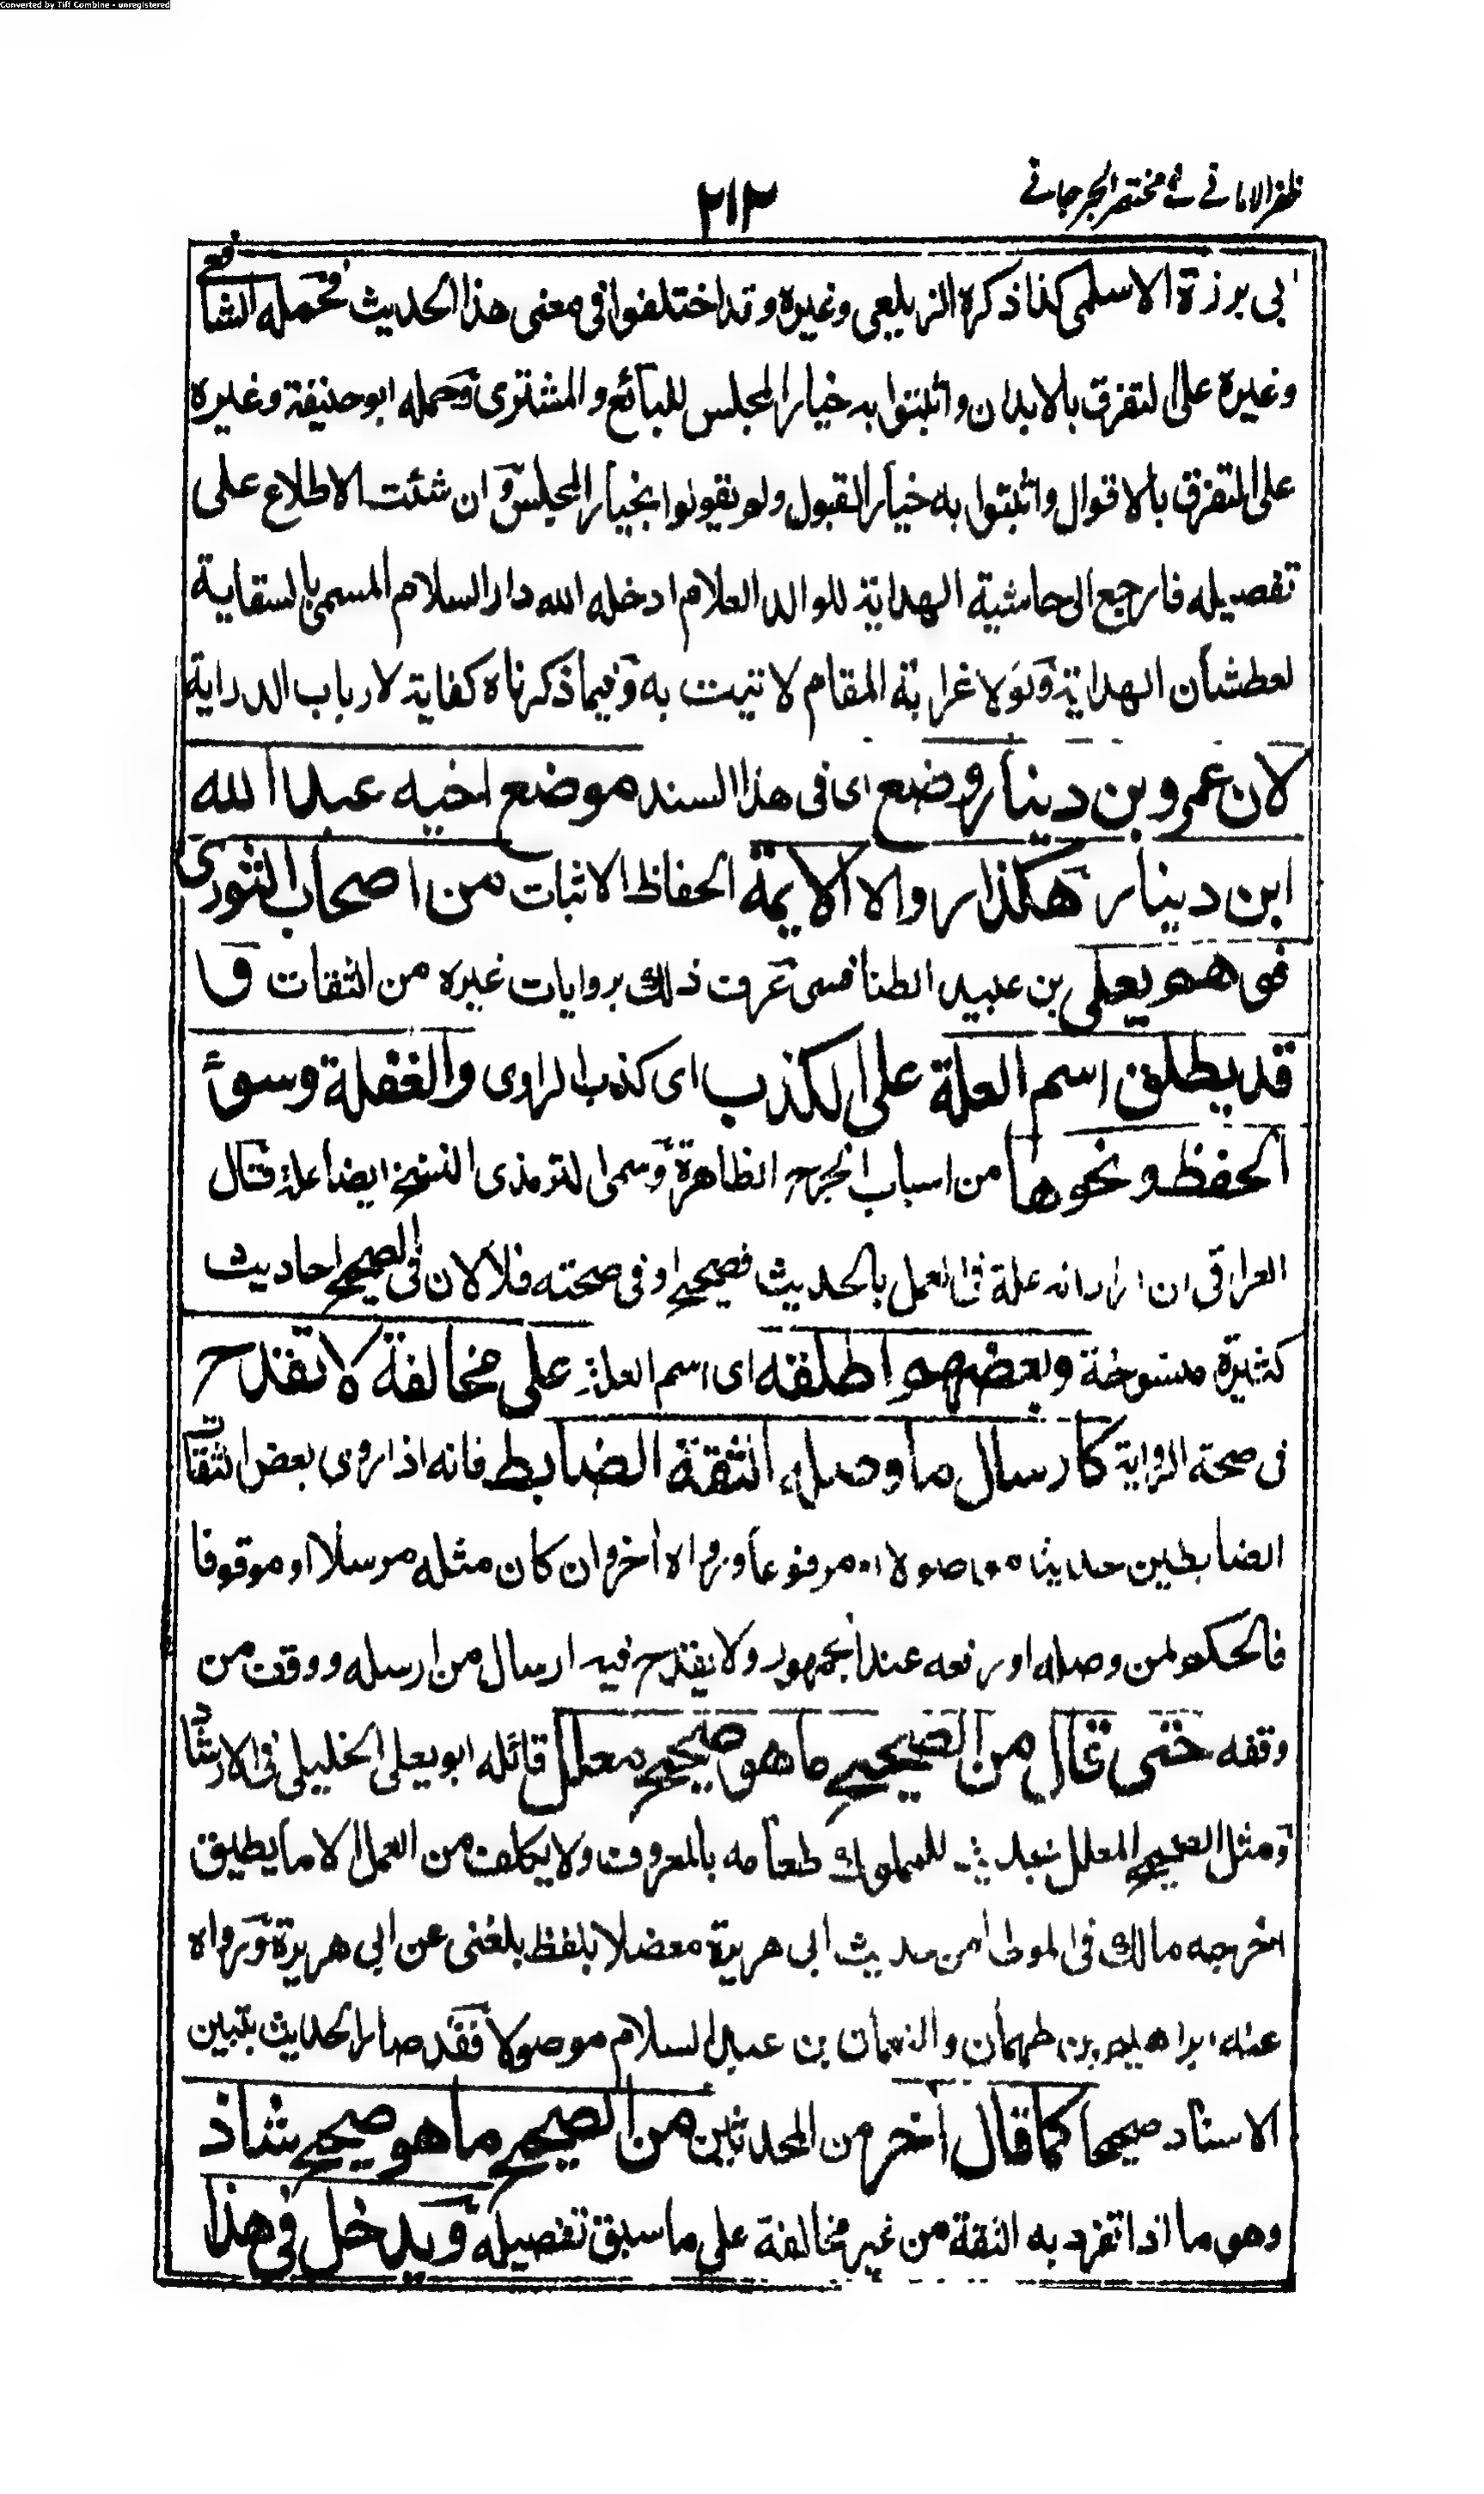 Converted by Tiff Combine - unregistered
ظفر الامانے فے مختصر الجرجانے
۲۱۲
ابی برزة الاسلمی کذا ذکره الزیلعی وغیره وقد اختلفوا فی معنی هذا الحدیث فحمله الشافعے
وغیره علی التفرق بالابدان واثبتوا به خیار المجلس للبائع والمشتری وحمله ابوحنیفة وغیره
علی التفرق بالاقوال واثبتوا به خیار القبول ولو یقولوا بخیار المجلس وان شئت الاطلاع علی
تفصیله فارجع الی حاشیة الهدایة للوالد العلام ادخله الله دار السلام المسمی بالسقایة
لعطشان الهدایة ولولا غرابة المقام لاتیت به وفیما ذکرناه کفایة لارباب الدرایة
لان عمرو بن دینار وضع ای فی هذا السند موضع اخیه عبد الله
ابن دینار هکذا رواه الایمة الحفاظ الاثبات من اصحاب الثوری
فوهو یعلی بن عبید الطنافسی عرف ذلك بروایات غیره من الثقات و
قد یطلق اسم العلة علی الکذب ای کذب الراوی والغفلة وسوء
الحفظ ونحوها من اسباب الجرح الظاهرة وسمی الترمذی النسخ ایضا علة قال
العراقی ان اراد انه علة فی العمل بالحدیث فصحیح او فی صحته فلا لان فی الصحیح احادیث
کثیرة منسوخة وبعضهم اطلقه ای اسم العلة علی مخالفة لا تقدح
فی صحة الروایة کارسال ما وصله الثقة الضابط فانه اذا روی بعض الثقات
الضابطین حدیثا موصولا او مرفوعا ورواه اخر وان کان مثله مرسلا او موقوفا
فالحکم لمن وصله او رفعه عند الجمهور ولا یقدح فیه ارسال من ارسله ووقف من
وقفه حتی قال من الصحیح ما هو صحیح معلل قائله ابو یعلی الخلیلی فی الارشاد
ومثل الصحیح المعلل بحدیث للمملوك طعامه بالمعروف ولا یکلف من العمل الا ما یطیق
اخرجه مالك فی الموطا من حدیث ابی هریرة معضلا بلفظ بلغنی عن ابی هریرة ورواه
عنه ابراهیم بن طهمان والنعمان بن عبد السلام موصولا فقد صار الحدیث بتبین
الاسناد صحیحا کما قال اخر من المحدثین من الصحیح ما هو صحیح شاذ
وهو ما اذا تفرد به الثقة من غیر مخالفة علی ما سبق تفصیله ویدخل فی هذا